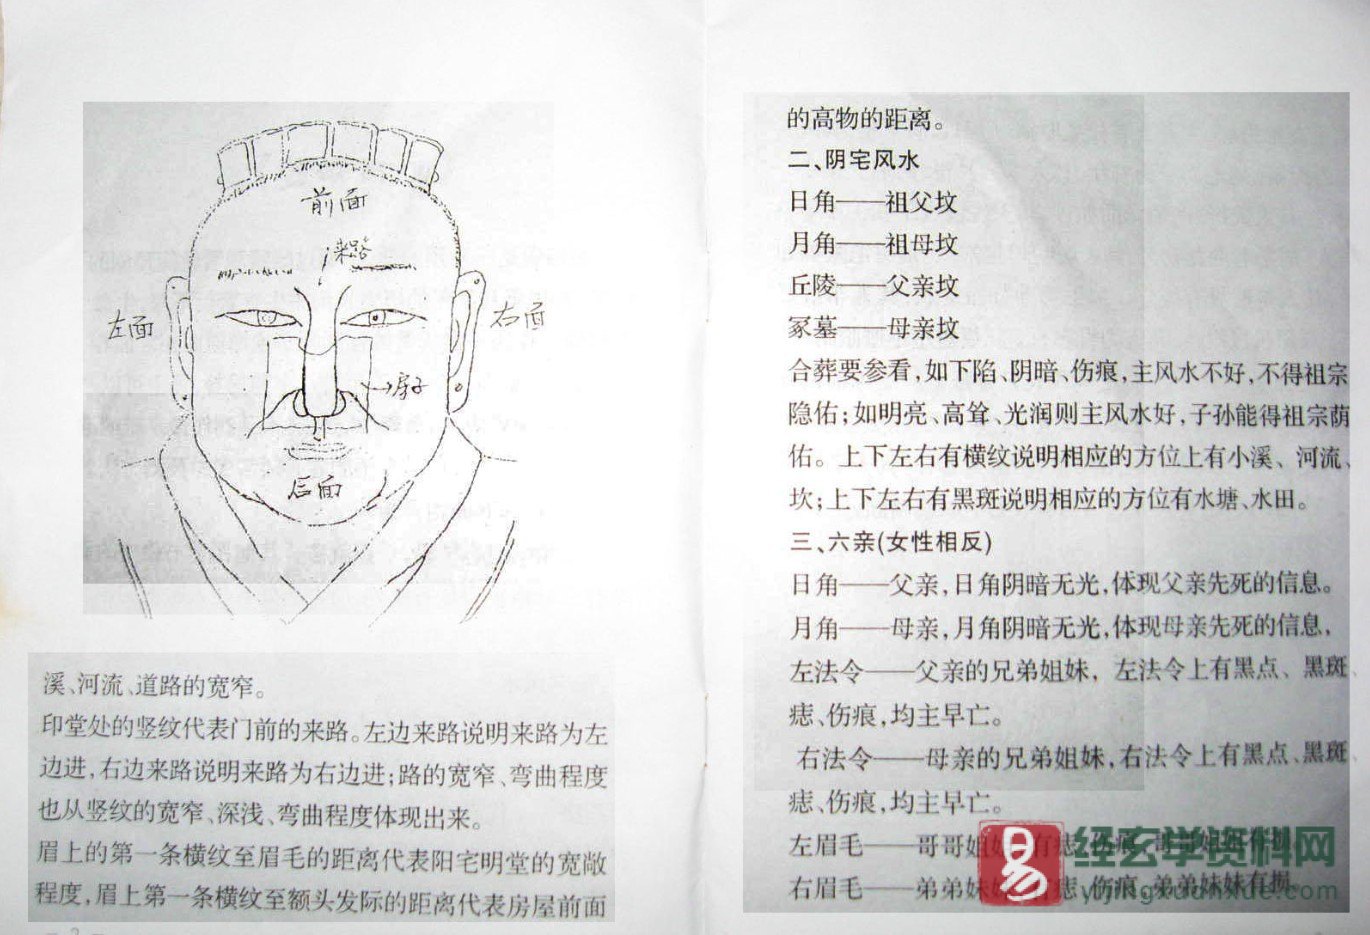 前面
来路
左面
右面
房子
后面
溪、河流、道路的宽窄。
印堂处的竖纹代表门前的来路。左边来路说明来路为左
边进,右边来路说明来路为右边进;路的宽窄、弯曲程度
也从竖纹的宽窄、深浅、弯曲程度体现出来。
眉上的第一条横纹至眉毛的距离代表阳宅明堂的宽敞
程度,眉上第一条横纹至额头发际的距离代表房屋前面
— 2 —
的高物的距离。
二、阴宅风水
日角——祖父坟
月角——祖母坟
丘陵——父亲坟
冢墓——母亲坟
合葬要参看,如下陷、阴暗、伤痕,主风水不好,不得祖宗
隐佑;如明亮、高耸、光润则主风水好,子孙能得祖宗荫
佑。上下左右有横纹说明相应的方位上有小溪、河流、
坎;上下左右有黑斑说明相应的方位有水塘、水田。
三、六亲(女性相反)
日角——父亲,日角阴暗无光,体现父亲先死的信息。
月角——母亲,月角阴暗无光,体现母亲先死的信息,
左法令——父亲的兄弟姐妹,左法令上有黑点、黑斑、
痣、伤痕,均主早亡。
右法令——母亲的兄弟姐妹,右法令上有黑点、黑斑、
痣、伤痕,均主早亡。
左眉毛——哥哥姐姐,有痣、伤痕,哥哥姐姐有损。
右眉毛——弟弟妹妹,有痣、伤痕,弟弟妹妹有损。
易
经玄学资料网
yijingxuanxue.com